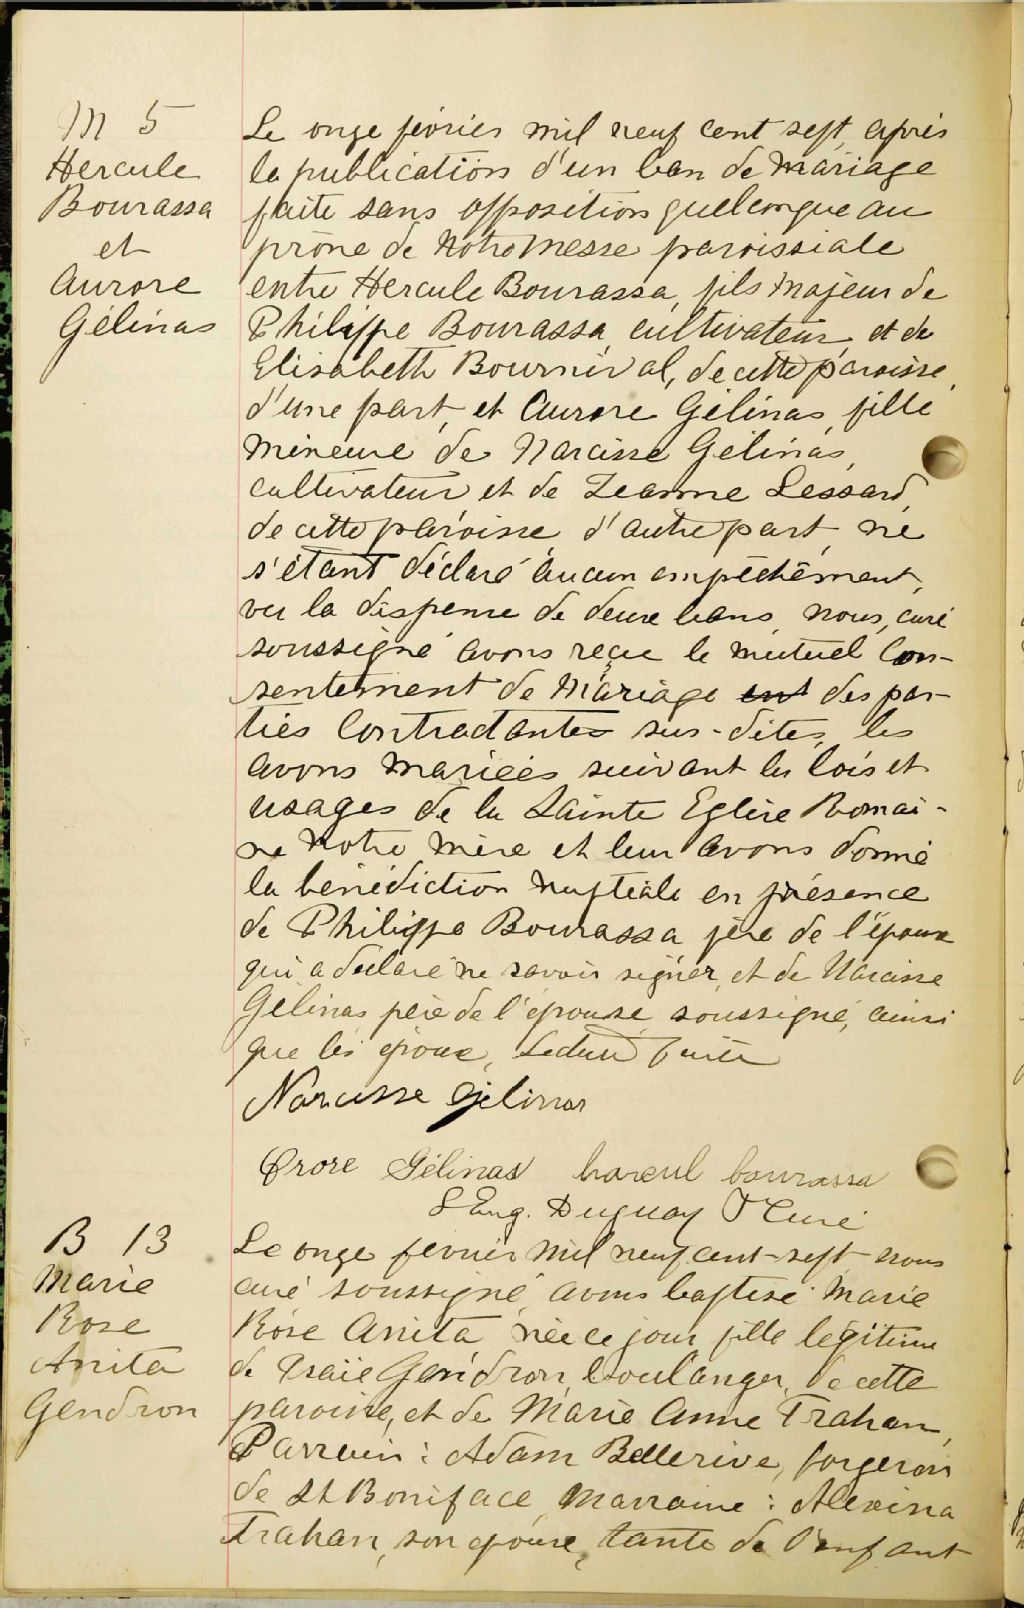 M 5
Hercule
Bourassa
et
Aurore
Gélinas
Le onze février mil neuf cent sept, après
la publication d'un ban de mariage
faite sans opposition quelconque au
prône de notre messe paroissiale
entre Hercule Bourassa, fils majeur de
Philippe Bourassa, cultivateur, et de
Elisabeth Bournival, de cette paroisse,
d'une part, et Aurore Gélinas, fille
mineure de Narcisse Gélinas,
cultivateur et de Jeanne Lessard,
de cette paroisse d'autre part, ne
s'étant déclaré aucun empêchement,
vu la dispense de deux bans, nous, curé
soussigné avons reçu le mutuel con-
sentement de mariage ent des par-
ties contractantes sus-dites, les
avons mariés suivant les lois et
usages de la Sainte Eglise Romai-
ne notre mère et leur avons donné
la bénédiction nuptiale en présence
de Philippe Bourassa père de l'époux
qui a déclaré ne savoir signer, et de Narcisse
Gélinas père de l'épouse soussigné, ainsi
que les époux, Lecture faite
Narcisse Gelinas
Orore Gélinas hareul bourassa
S Eug. Duguay Ptre Curé
B 13
Marie
Rose
Anita
Gendron
Le onze février mil neuf cent-sept nous
curé soussigné avons baptisé Marie
Rose Anita née ce jour fille légitime
de Isaïe Gendron, boulanger, de cette
paroisse, et de Marie Anne Trahan,
Parrain : Adam Bellerive, forgeron
de St Boniface, Marraine : Alexina
Trahan, son épouse, tante de l'enfant